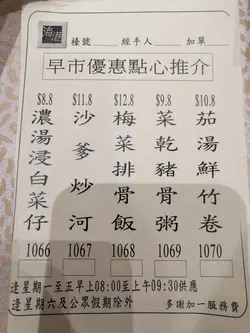 海港
檯號 經手人 加單
早市優惠點心推介
$8.8 $11.8 $12.8 $9.8 $10.8
濃湯浸白菜仔
沙爹炒河
梅菜排骨飯
菜乾豬骨粥
茄湯鮮竹卷
1066 1067 1068 1069 1070
逢星期一至五早上08:00至上午09:30供應
逢星期六及公眾假期除外 多謝加一服務費